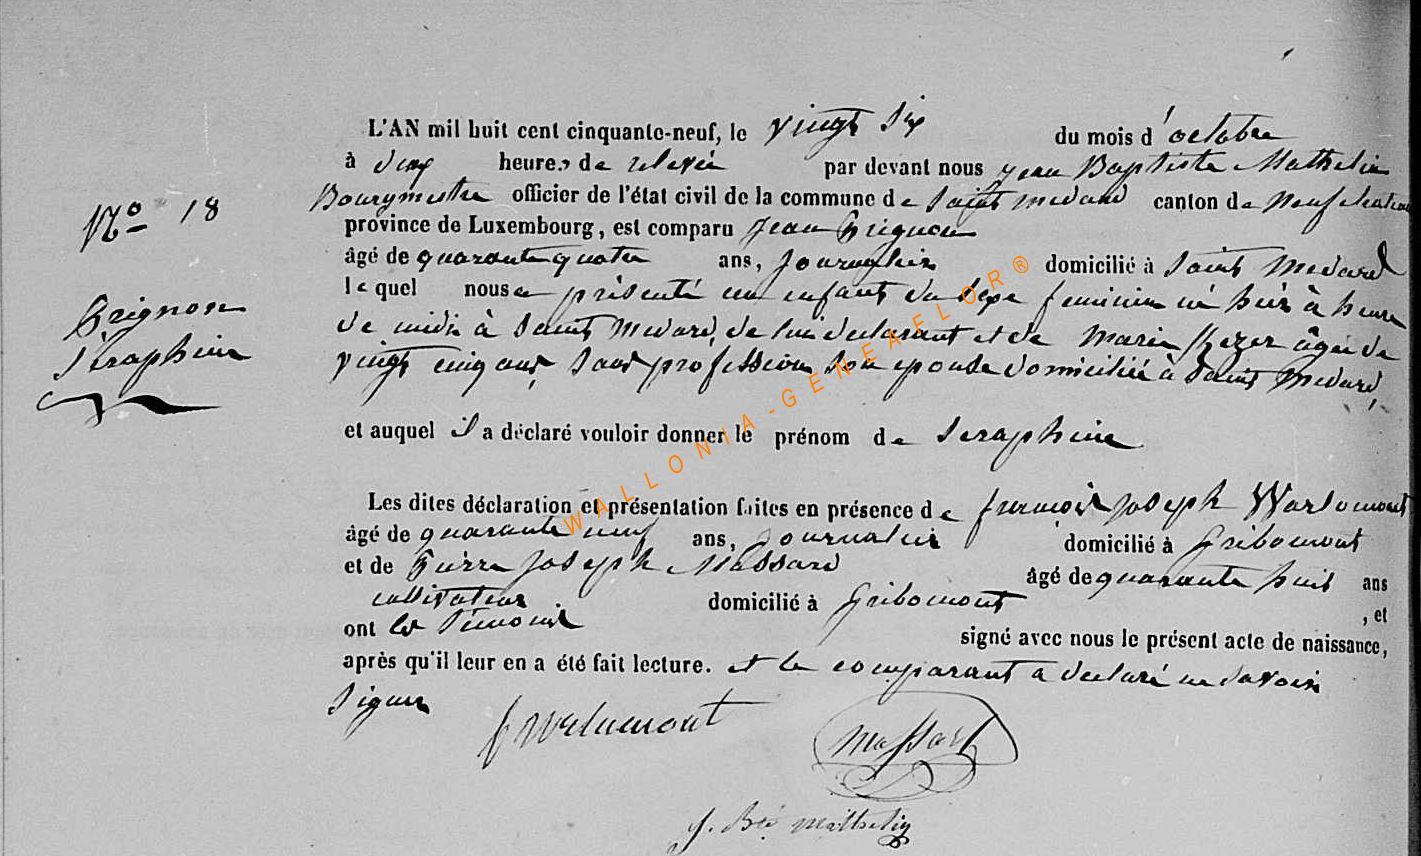 L'AN mil huit cent cinquante-neuf, le vingt six du mois d'octobre
à deux heures de relevée par devant nous Jean Baptiste Mathelin
Bourgmestre officier de l'état civil de la commune de Saint médard canton de Neufchateau
N° 18
province de Luxembourg, est comparu Jean Grignon
âgé de quarante quatre ans, journalier domicilié à Saint Medard
lequel nous a présenté un enfant du sexe feminin né hier à heure
Grignon
de midi à Saint Medard, de lui declarant et de Marie âgée de
Séraphine
vingt cinq ans, sans profession son epouse domiciliée à Saint Medard,
et auquel il a déclaré vouloir donner le prénom de Seraphine
Les dites déclaration et présentation faites en présence de françois Joseph Warlomont
âgé de quarante neuf ans, journalier domicilié à Gribomont
et de Pierre Joseph Massard âgé de quarante huit ans
cultivateur domicilié à Gribomont , et
ont les témoins signé avec nous le présent acte de naissance,
après qu'il leur en a été fait lecture. et le comparant a declaré ne savoir
signer
Massard
J. Bte Mathelin
WALLONIA-GENEAFLOR®